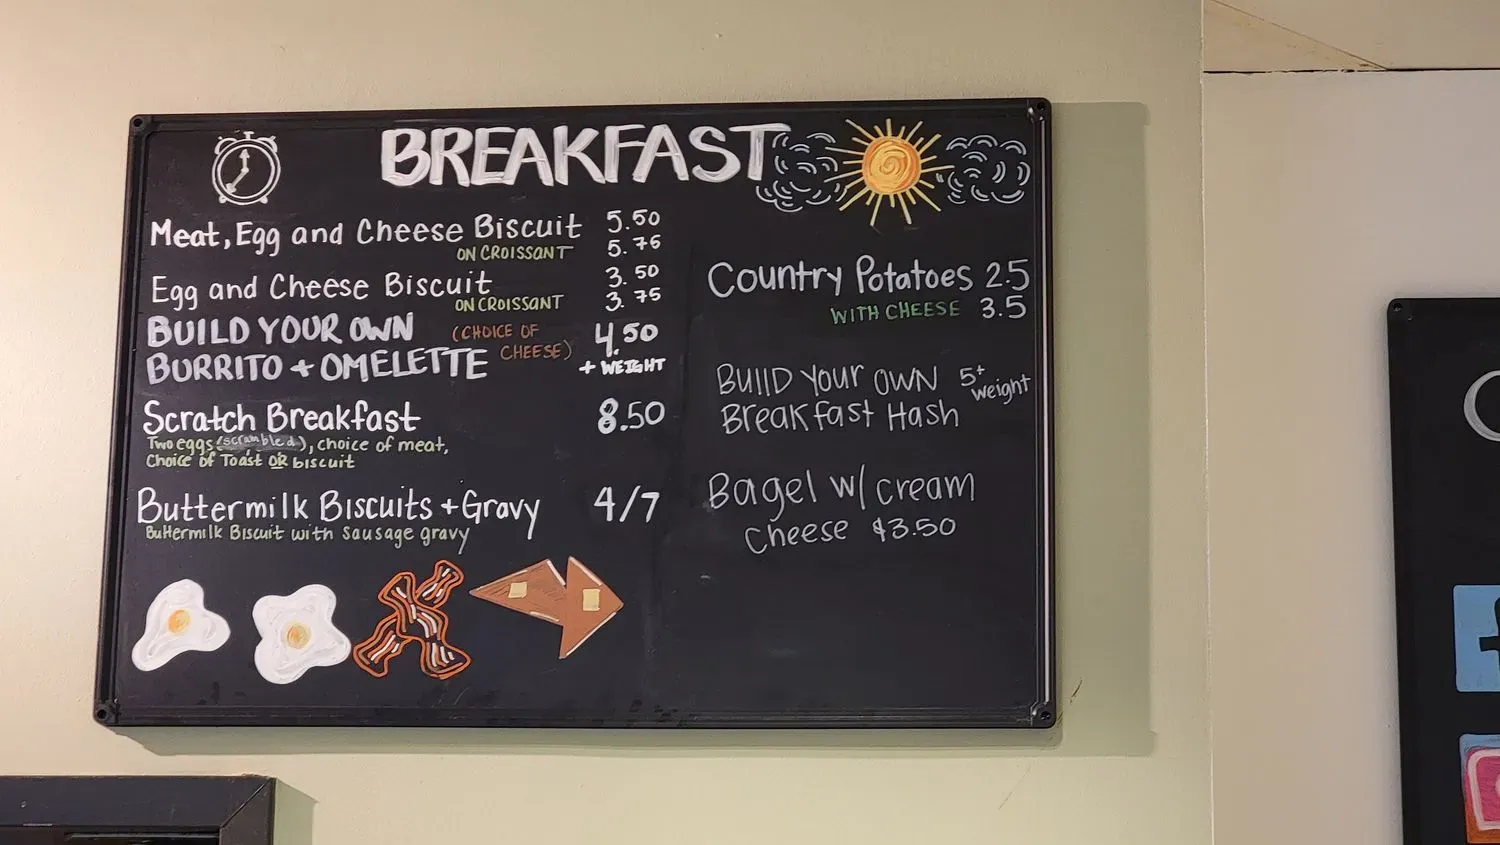 BREAKFAST
Meat, Egg and Cheese Biscuit 5.50
ON CROISSANT 5.75
Egg and Cheese Biscuit 3.50
ON CROISSANT 3.75
BUILD YOUR OWN (CHOICE OF 4.50
BURRITO + OMELETTE CHEESE) + WEIGHT
Scratch Breakfast 8.50
Two eggs (scrambled), choice of meat,
Choice of Toast OR biscuit
Buttermilk Biscuits + Gravy 4/7
Buttermilk Biscuit with Sausage gravy
Country Potatoes 2.5
WITH CHEESE 3.5
BUILD YOUR OWN 5+
Breakfast Hash weight
Bagel w/ cream
Cheese $3.50